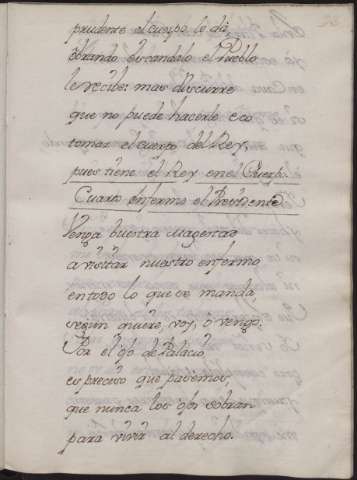 prudente el cuerpo le dà
obrando buscandolo el Pueblo
le recibe: mas discurre
que no puede hacerle eco
tomar el cuerto del Rey,
pues tiene el Rey en el Cuerpo.
Cuarto enfermo el Presidente
Venga buestra Magestad
a visitar nuestro enfermo
en todo lo que se manda,
segun quiere, voy, ò vengo.
Por el qto de Palacio,
es preceso que pasemos,
que nunca los qtos sobran
para vivir al derecho.